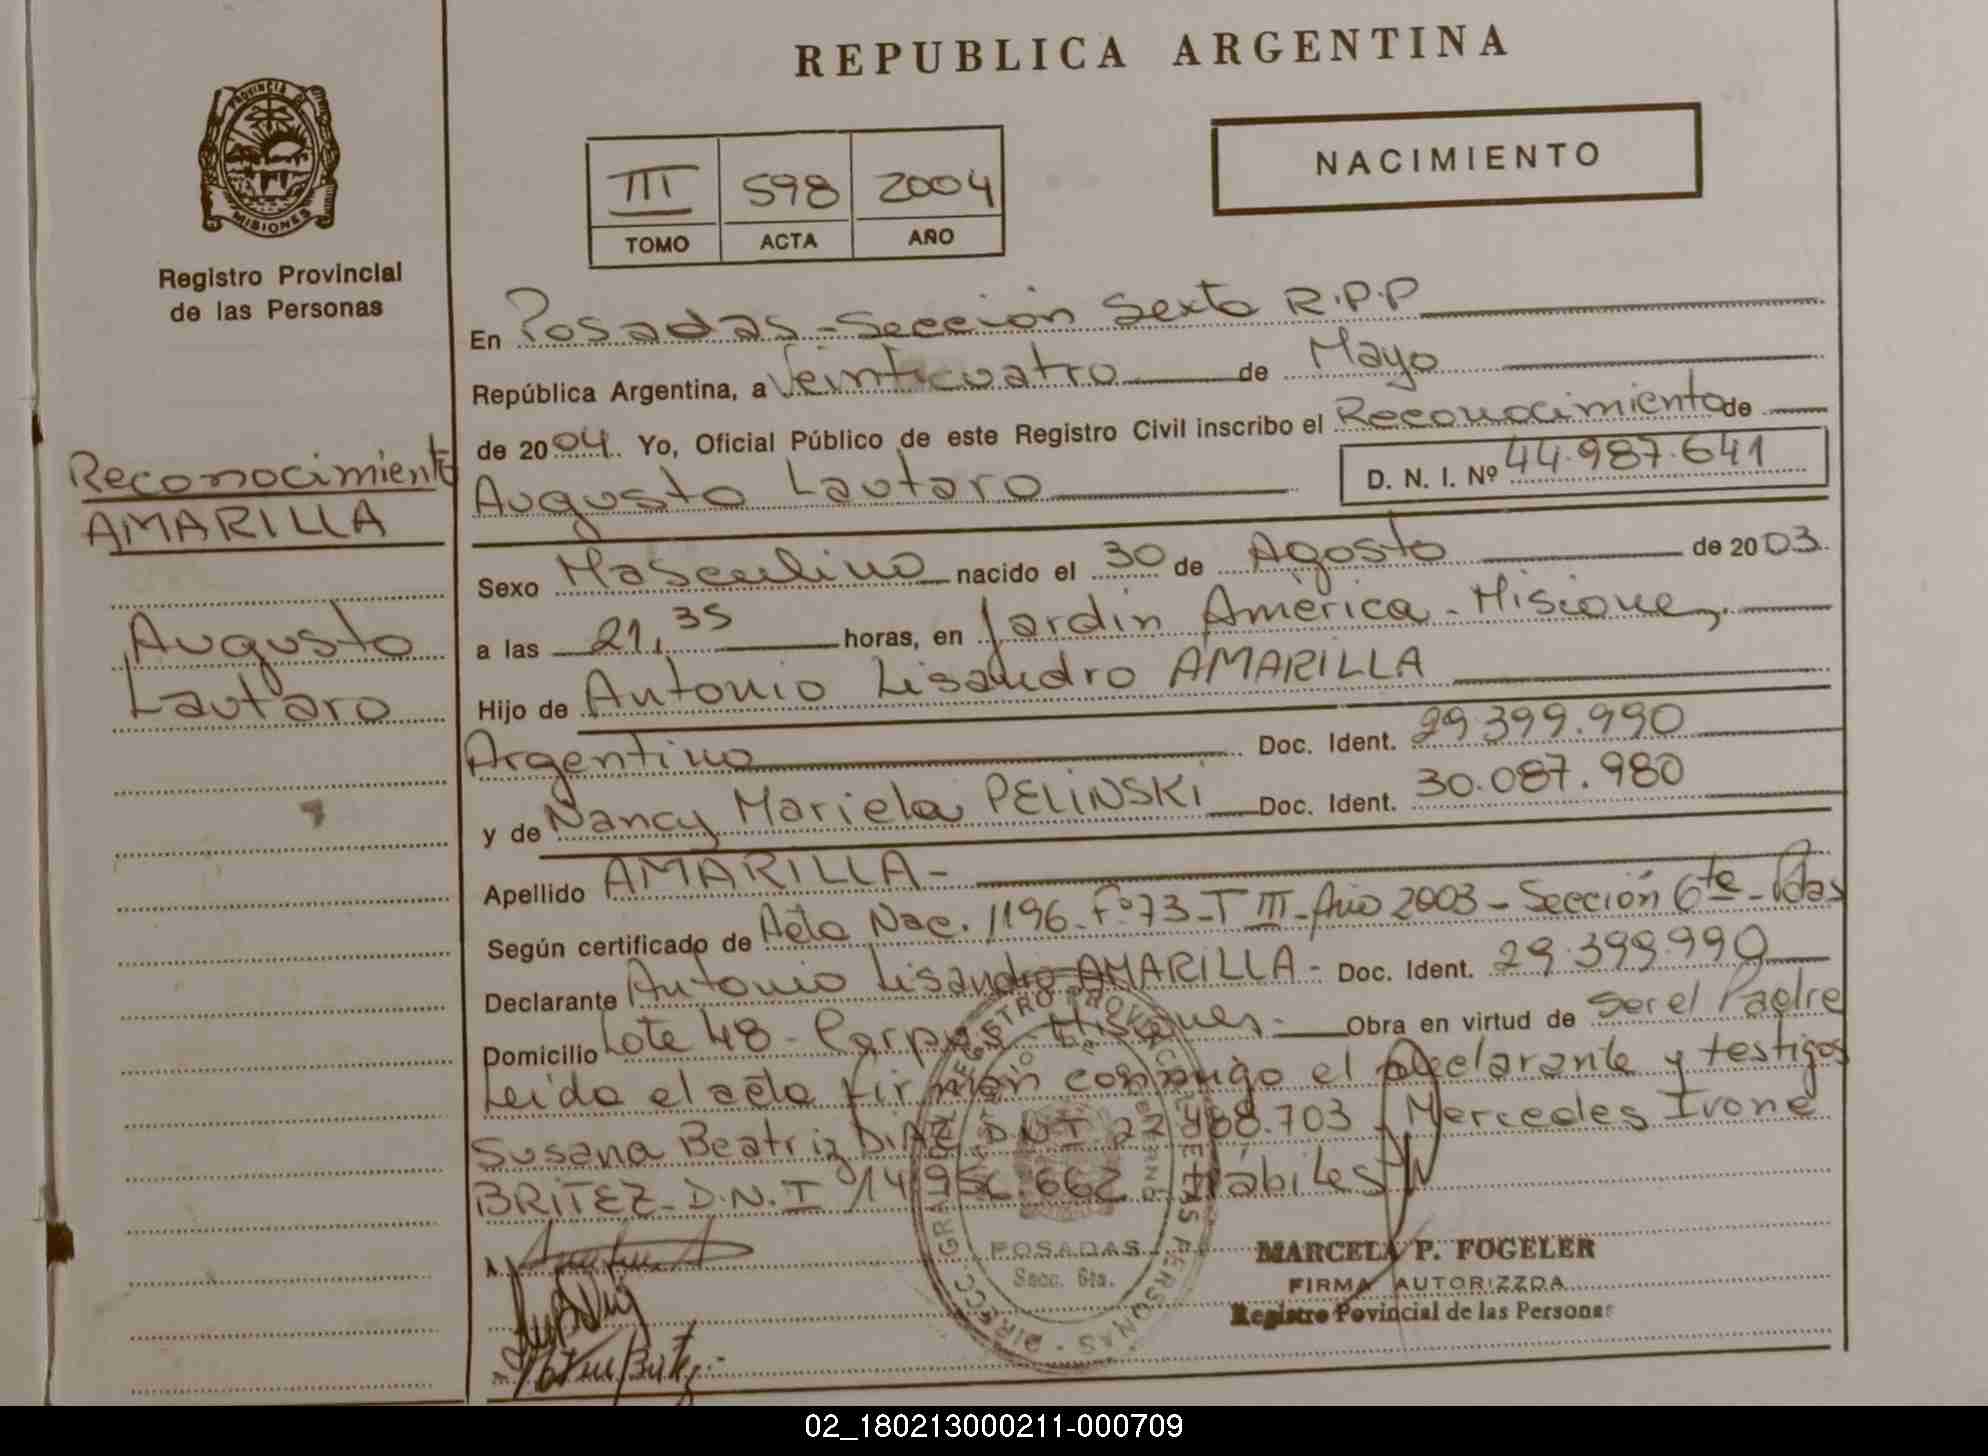 REPUBLICA ARGENTINA
PROVINCIA DE
MISIONES
Registro Provincial
de las Personas
III 598 2004
TOMO ACTA AÑO
NACIMIENTO
En Posadas - Sección Sexta R.P.P
República Argentina, a Veinticuatro de Mayo
de 2004. Yo, Oficial Público de este Registro Civil inscribo el Reconocimiento de
Augusto Lautaro D. N. I. Nº 44.987.641
Reconocimiento
AMARILLA
Augusto
Lautaro
Sexo Masculino nacido el 30 de Agosto de 2003.
a las 21,35 horas, en Jardin América - Misiones
Hijo de Antonio Lisandro AMARILLA
Argentino Doc. Ident. 29.399.990
y de Nancy Mariela PELINSKI Doc. Ident. 30.087.980
Apellido AMARILLA -
Según certificado de Acta Nac. 1196 - Fº 73 - T III - Año 2003 - Sección 6te - Pdas
Declarante Antonio Lisandro AMARILLA - Doc. Ident. 29.399.990
Domicilio Lote 48 - Misiones - Obra en virtud de ser el Padre
Leída el acta firman conmigo el declarante y testigos
Susana Beatriz DIAZ D.N.I 703 Mercedes Ivone
BRITEZ - D.N.I 662 Hábiles
POSADAS
Secc. 6ta.
MARCELA P. FOGELER
FIRMA AUTORIZZDA
Registro Povincial de las Personas
02_180213000211-000709